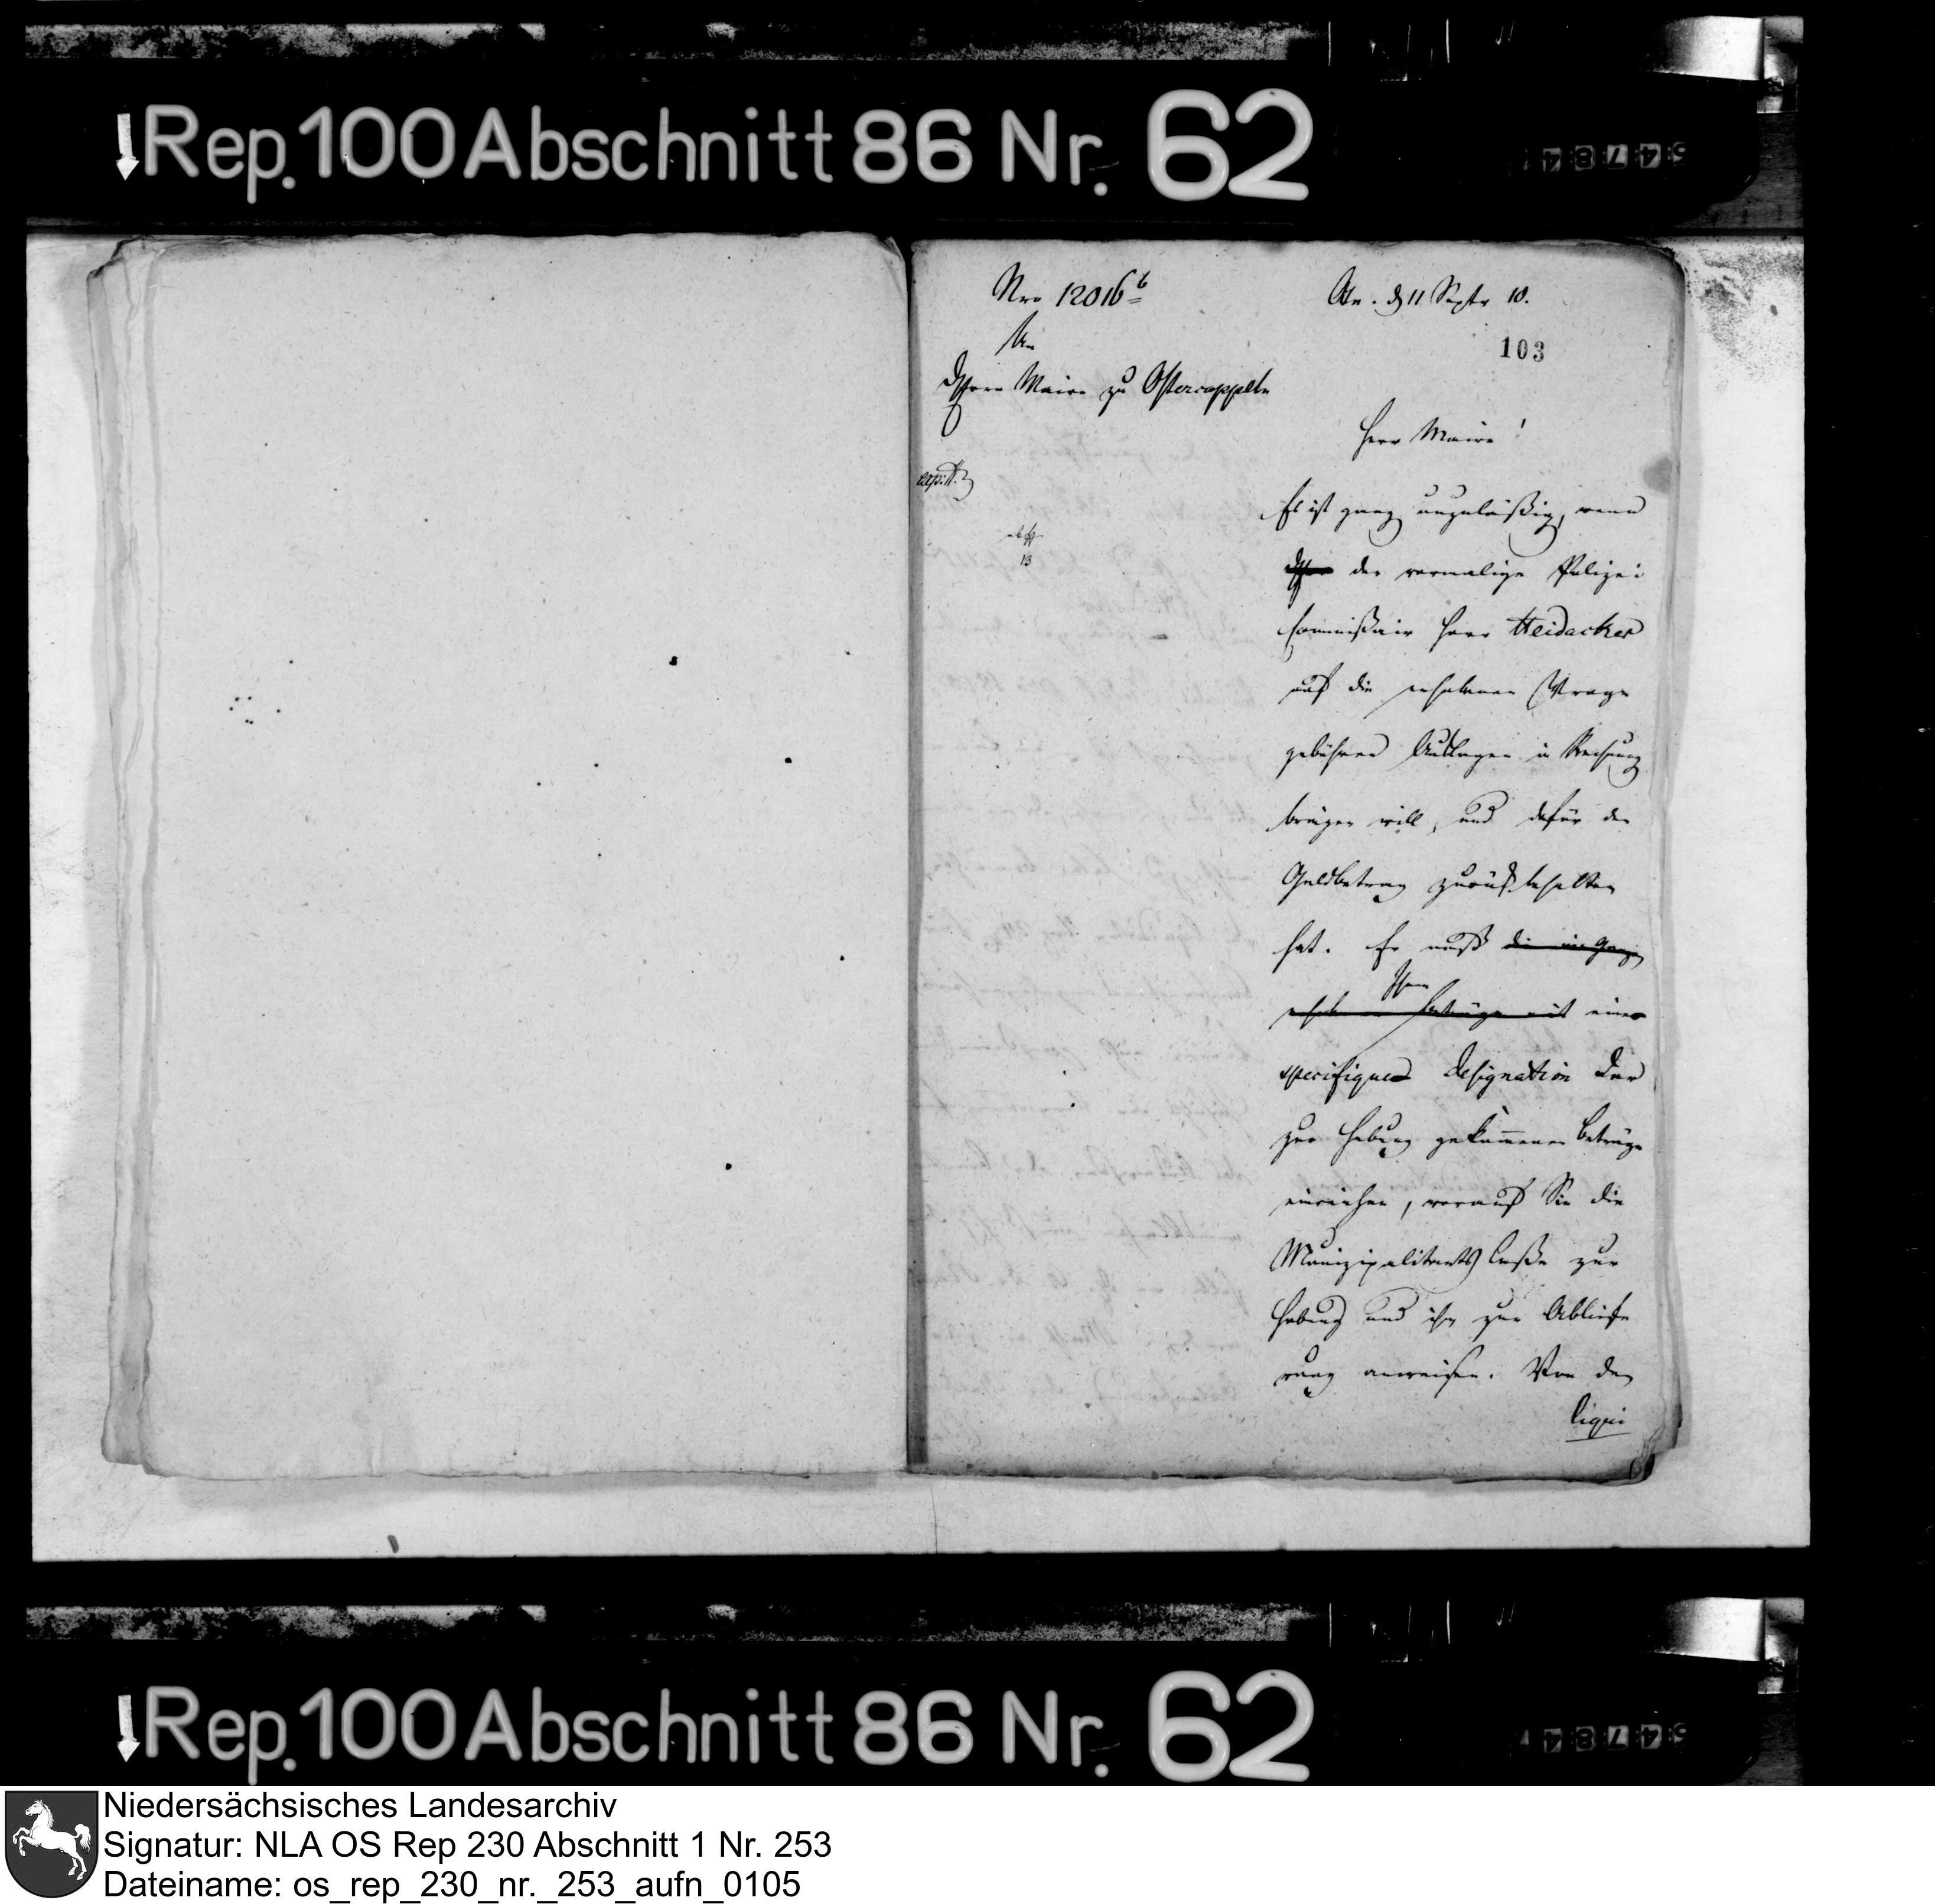 Rep. 100 Abschnitt 86 Nr. 62
54784
Nro 12016b
An
Herrn Maire zu Ostercappeln
Osn. d 11 Septr 10.
103
expdt.
abg
13
Herr Maire!
Es ist ganz unzuläßig, wenn
der vormalige Polizei
Commißair Herr Heidacker
auf die erhobenen
gebühren Auslagen in Rechnung
bringen will, und dafür den
Geldbetrag zurückbehalten
hat. Er muß die im ganzen
Ihnen
erhobenen Beträge mit einer
specifiquen Designation der
zur Hebung gekommenen Beträge
einreichen, worauf Sie die
Munizipalitaets Caße zur
Hebung und ihn zur Abliefe
rung anweisen. Von den
liqui
Rep. 100 Abschnitt 86 Nr. 62
54784
Niedersächsisches Landesarchiv
Signatur: NLA OS Rep 230 Abschnitt 1 Nr. 253
Dateiname: os_rep_230_nr._253_aufn_0105